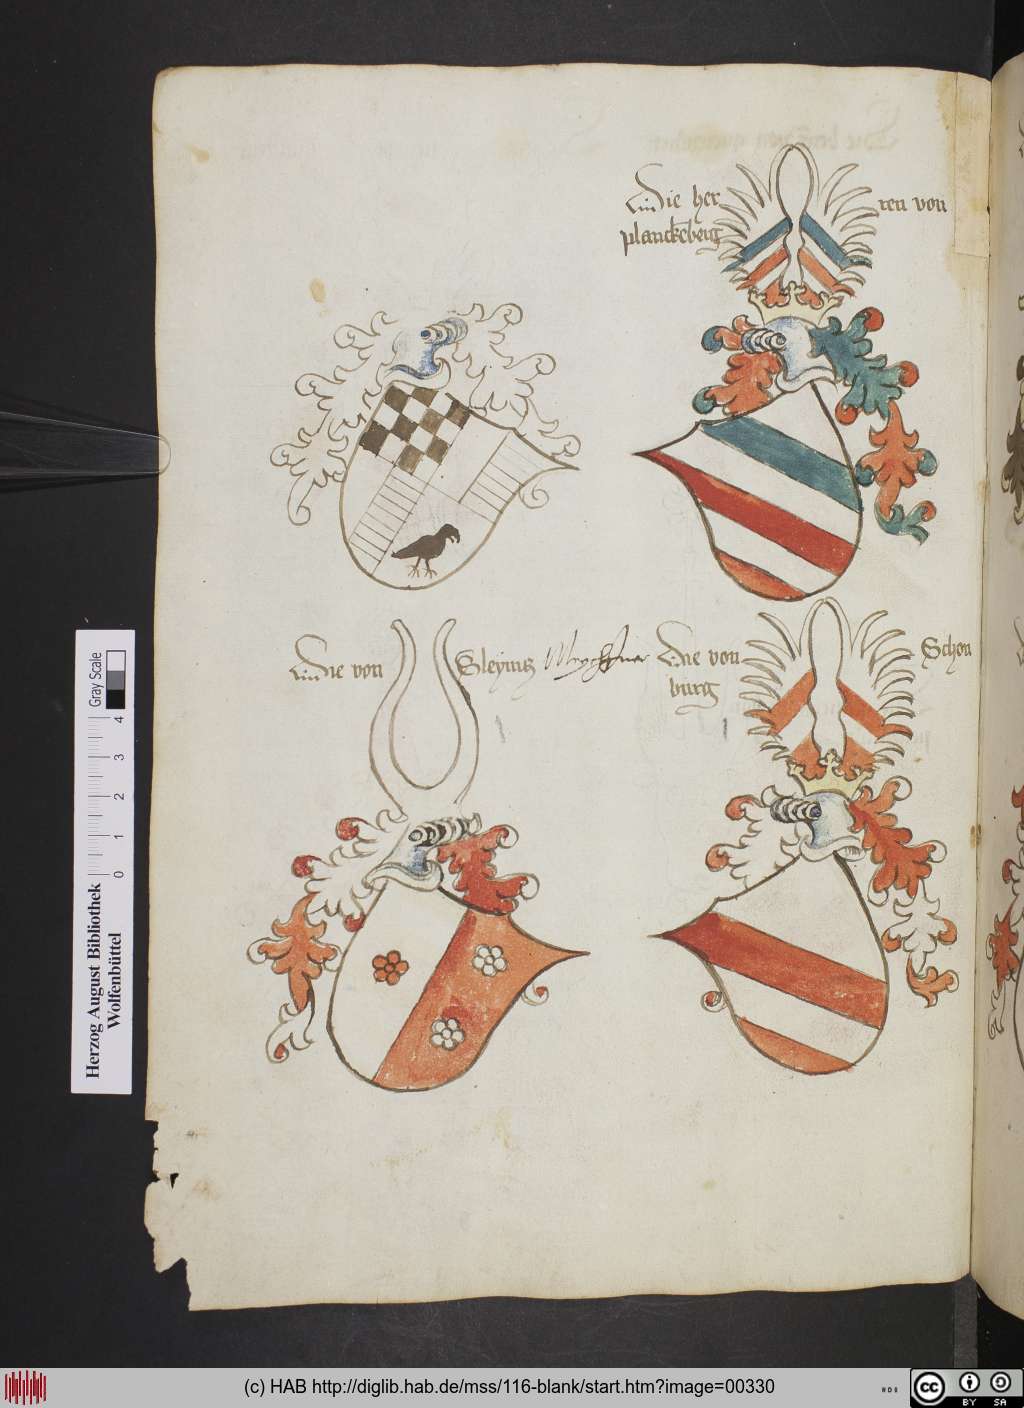 Die her ren von
planckeberg
Die von Sleyinz
Die von Schon
burg
Gray Scale
0 1 2 3 4
Herzog August Bibliothek
Wolfenbüttel
(c) HAB http://diglib.hab.de/mss/116-blank/start.htm?image=00330
cc BY SA